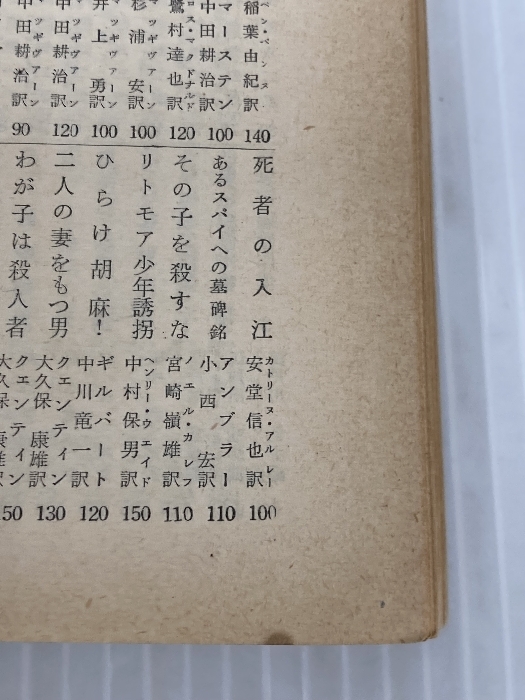 稲葉由紀訳 ベン・ベンスン 140
マーステン
中田耕治訳 100
ロス・マクドナルド
鷺村達也訳 120
マッギヴァーン
杉浦安訳 100
マッギヴァーン
井上勇訳 100
マッギヴァーン
中田耕治訳 120
マッギヴァーン
中田耕治訳 90
死者の入江 カトリーヌ・アルレー
安堂信也訳 100
あるスパイへの墓碑銘 アンブラー
小西宏訳 110
その子を殺すな ノエル・カレフ
宮崎嶺雄訳 110
リトモア少年誘拐 ヘンリー・ウェイド
中村保男訳 150
ひらけ胡麻! ギルバート
中川竜一訳 120
二人の妻をもつ男 クェンティン
大久保康雄訳 130
わが子は殺人者 クェンティン
大久保康雄訳 150